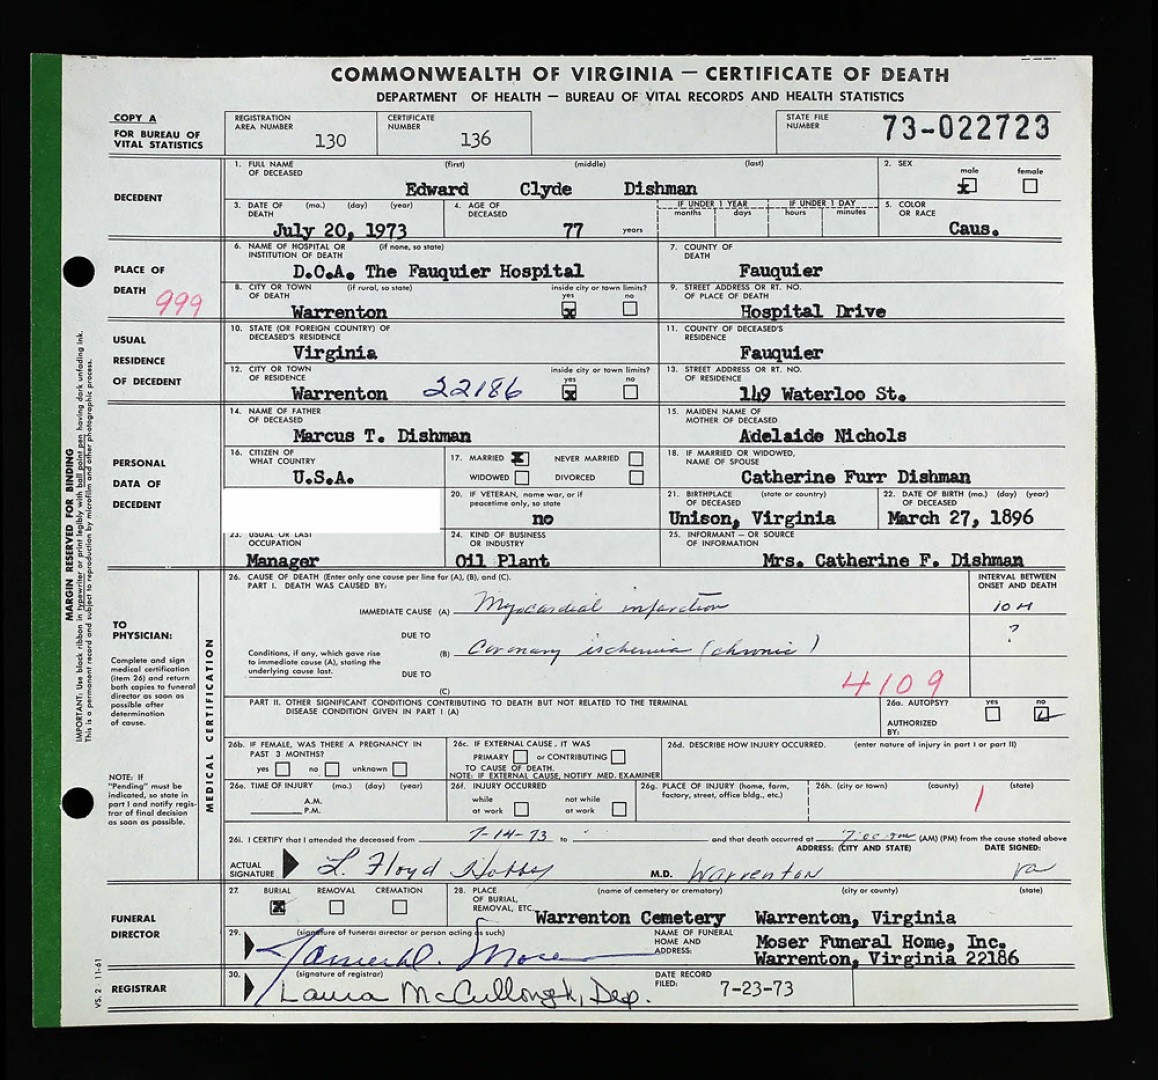 COMMONWEALTH OF VIRGINIA — CERTIFICATE OF DEATH
DEPARTMENT OF HEALTH — BUREAU OF VITAL RECORDS AND HEALTH STATISTICS
COPY A
FOR BUREAU OF VITAL STATISTICS
REGISTRATION AREA NUMBER 130
CERTIFICATE NUMBER 136
STATE FILE NUMBER 73-022723
DECEDENT
1. FULL NAME OF DECEASED (first) (middle) (last)
Edward Clyde Dishman
2. SEX male x female
3. DATE OF DEATH (mo.) (day) (year)
July 20, 1973
4. AGE OF DECEASED
77 years
IF UNDER 1 YEAR months days
IF UNDER 1 DAY hours minutes
5. COLOR OR RACE
Caus.
PLACE OF DEATH
999
6. NAME OF HOSPITAL OR INSTITUTION OF DEATH (if none, so state)
D.O.A. The Fauquier Hospital
7. COUNTY OF DEATH
Fauquier
8. CITY OR TOWN OF DEATH (if rural, so state) inside city or town limits? yes x no
Warrenton
9. STREET ADDRESS OR RT. NO. OF PLACE OF DEATH
Hospital Drive
USUAL RESIDENCE OF DECEDENT
10. STATE (OR FOREIGN COUNTRY) OF DECEASED'S RESIDENCE
Virginia
11. COUNTY OF DECEASED'S RESIDENCE
Fauquier
12. CITY OR TOWN OF RESIDENCE inside city or town limits? yes x no
Warrenton 22186
13. STREET ADDRESS OR RT. NO. OF RESIDENCE
149 Waterloo St.
PERSONAL DATA OF DECEDENT
14. NAME OF FATHER OF DECEASED
Marcus T. Dishman
15. MAIDEN NAME OF MOTHER OF DECEASED
Adelaide Nichols
16. CITIZEN OF WHAT COUNTRY
U.S.A.
17. MARRIED X NEVER MARRIED
WIDOWED DIVORCED
18. IF MARRIED OR WIDOWED, NAME OF SPOUSE
Catherine Furr Dishman
20. IF VETERAN, name war, or if peacetime only, so state
no
21. BIRTHPLACE OF DECEASED (state or country)
Unison, Virginia
22. DATE OF BIRTH (mo.) (day) (year) OF DECEASED
March 27, 1896
23. USUAL OR LAST OCCUPATION
Manager
24. KIND OF BUSINESS OR INDUSTRY
Oil Plant
25. INFORMANT — OR SOURCE OF INFORMATION
Mrs. Catherine F. Dishman
MARGIN RESERVED FOR BINDING
IMPORTANT: Use black ribbon in typewriter or print legibly with ball point pen having dark unfading ink.
This is a permanent record and subject to reproduction by microfilm and other photographic process.
TO PHYSICIAN:
Complete and sign medical certification (item 26) and return both copies to funeral director as soon as possible after determination of cause.
NOTE: IF "Pending" must be indicated, so state in part I and notify registrar of final decision as soon as possible.
MEDICAL CERTIFICATION
26. CAUSE OF DEATH (Enter only one cause per line for (A), (B), and (C).
PART I. DEATH WAS CAUSED BY:
INTERVAL BETWEEN ONSET AND DEATH
IMMEDIATE CAUSE (A) Myocardial infarction 10 H
Conditions, if any, which gave rise to immediate cause (A), stating the underlying cause last.
DUE TO (B) Coronary ischemia (chronic) ?
DUE TO (C)
4109
PART II. OTHER SIGNIFICANT CONDITIONS CONTRIBUTING TO DEATH BUT NOT RELATED TO THE TERMINAL DISEASE CONDITION GIVEN IN PART I (A)
26a. AUTOPSY? yes no
AUTHORIZED BY:
26b. IF FEMALE, WAS THERE A PREGNANCY IN PAST 3 MONTHS?
yes no unknown
26c. IF EXTERNAL CAUSE, IT WAS
PRIMARY or CONTRIBUTING
TO CAUSE OF DEATH.
NOTE: IF EXTERNAL CAUSE, NOTIFY MED. EXAMINER
26d. DESCRIBE HOW INJURY OCCURRED. (enter nature of injury in part I or part II)
26e. TIME OF INJURY (mo.) (day) (year)
A.M.
P.M.
26f. INJURY OCCURRED
while at work not while at work
26g. PLACE OF INJURY (home, farm, factory, street, office bldg., etc.)
26h. (city or town) (county) (state)
1
26i. I CERTIFY that I attended the deceased from 7-14-73 to and that death occurred at (AM) (PM) from the cause stated above
ADDRESS: (CITY AND STATE) DATE SIGNED:
ACTUAL SIGNATURE L. Floyd M.D. Warrenton Va
FUNERAL DIRECTOR
27. BURIAL x REMOVAL CREMATION
28. PLACE OF BURIAL, REMOVAL, ETC. (name of cemetery or crematory) (city or county) (state)
Warrenton Cemetery Warrenton, Virginia
29. (signature of funeral director or person acting as such)
NAME OF FUNERAL HOME AND ADDRESS:
Moser Funeral Home, Inc.
Warrenton, Virginia 22186
REGISTRAR
30. (signature of registrar)
Laura McCullough, Dep.
DATE RECORD FILED: 7-23-73
VS. 2 - 11-61